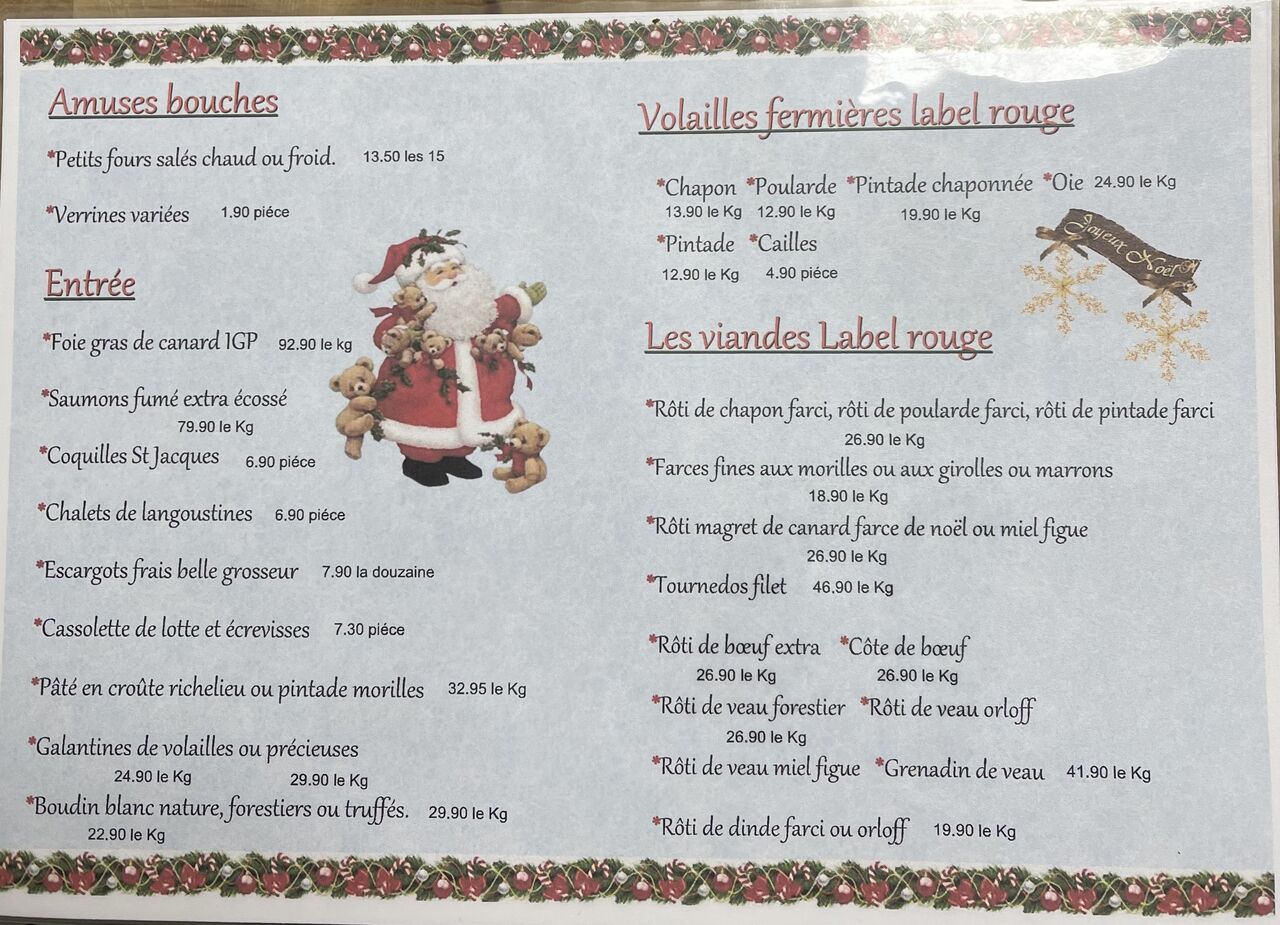 Amuses bouches
*Petits fours salés chaud ou froid. 13.50 les 15
*Verrines variées 1.90 piéce
Entrée
*Foie gras de canard IGP 92.90 le kg
*Saumons fumé extra écossé
79.90 le Kg
*Coquilles St Jacques 6.90 piéce
*Chalets de langoustines 6.90 piéce
*Escargots frais belle grosseur 7.90 la douzaine
*Cassolette de lotte et écrevisses 7.30 piéce
*Pâté en croûte richelieu ou pintade morilles 32.95 le Kg
*Galantines de volailles ou précieuses
24.90 le Kg 29.90 le Kg
*Boudin blanc nature, forestiers ou truffés. 29.90 le Kg
22.90 le Kg
Volailles fermières label rouge
*Chapon *Poularde *Pintade chaponnée *Oie 24.90 le Kg
13.90 le Kg 12.90 le Kg 19.90 le Kg
*Pintade *Cailles
12.90 le Kg 4.90 piéce
Joyeux Noël
Les viandes Label rouge
*Rôti de chapon farci, rôti de poularde farci, rôti de pintade farci
26.90 le Kg
*Farces fines aux morilles ou aux girolles ou marrons
18.90 le Kg
*Rôti magret de canard farce de noël ou miel figue
26.90 le Kg
*Tournedos filet 46.90 le Kg
*Rôti de bœuf extra *Côte de bœuf
26.90 le Kg 26.90 le Kg
*Rôti de veau forestier *Rôti de veau orloff
26.90 le Kg
*Rôti de veau miel figue *Grenadin de veau 41.90 le Kg
*Rôti de dinde farci ou orloff 19.90 le Kg